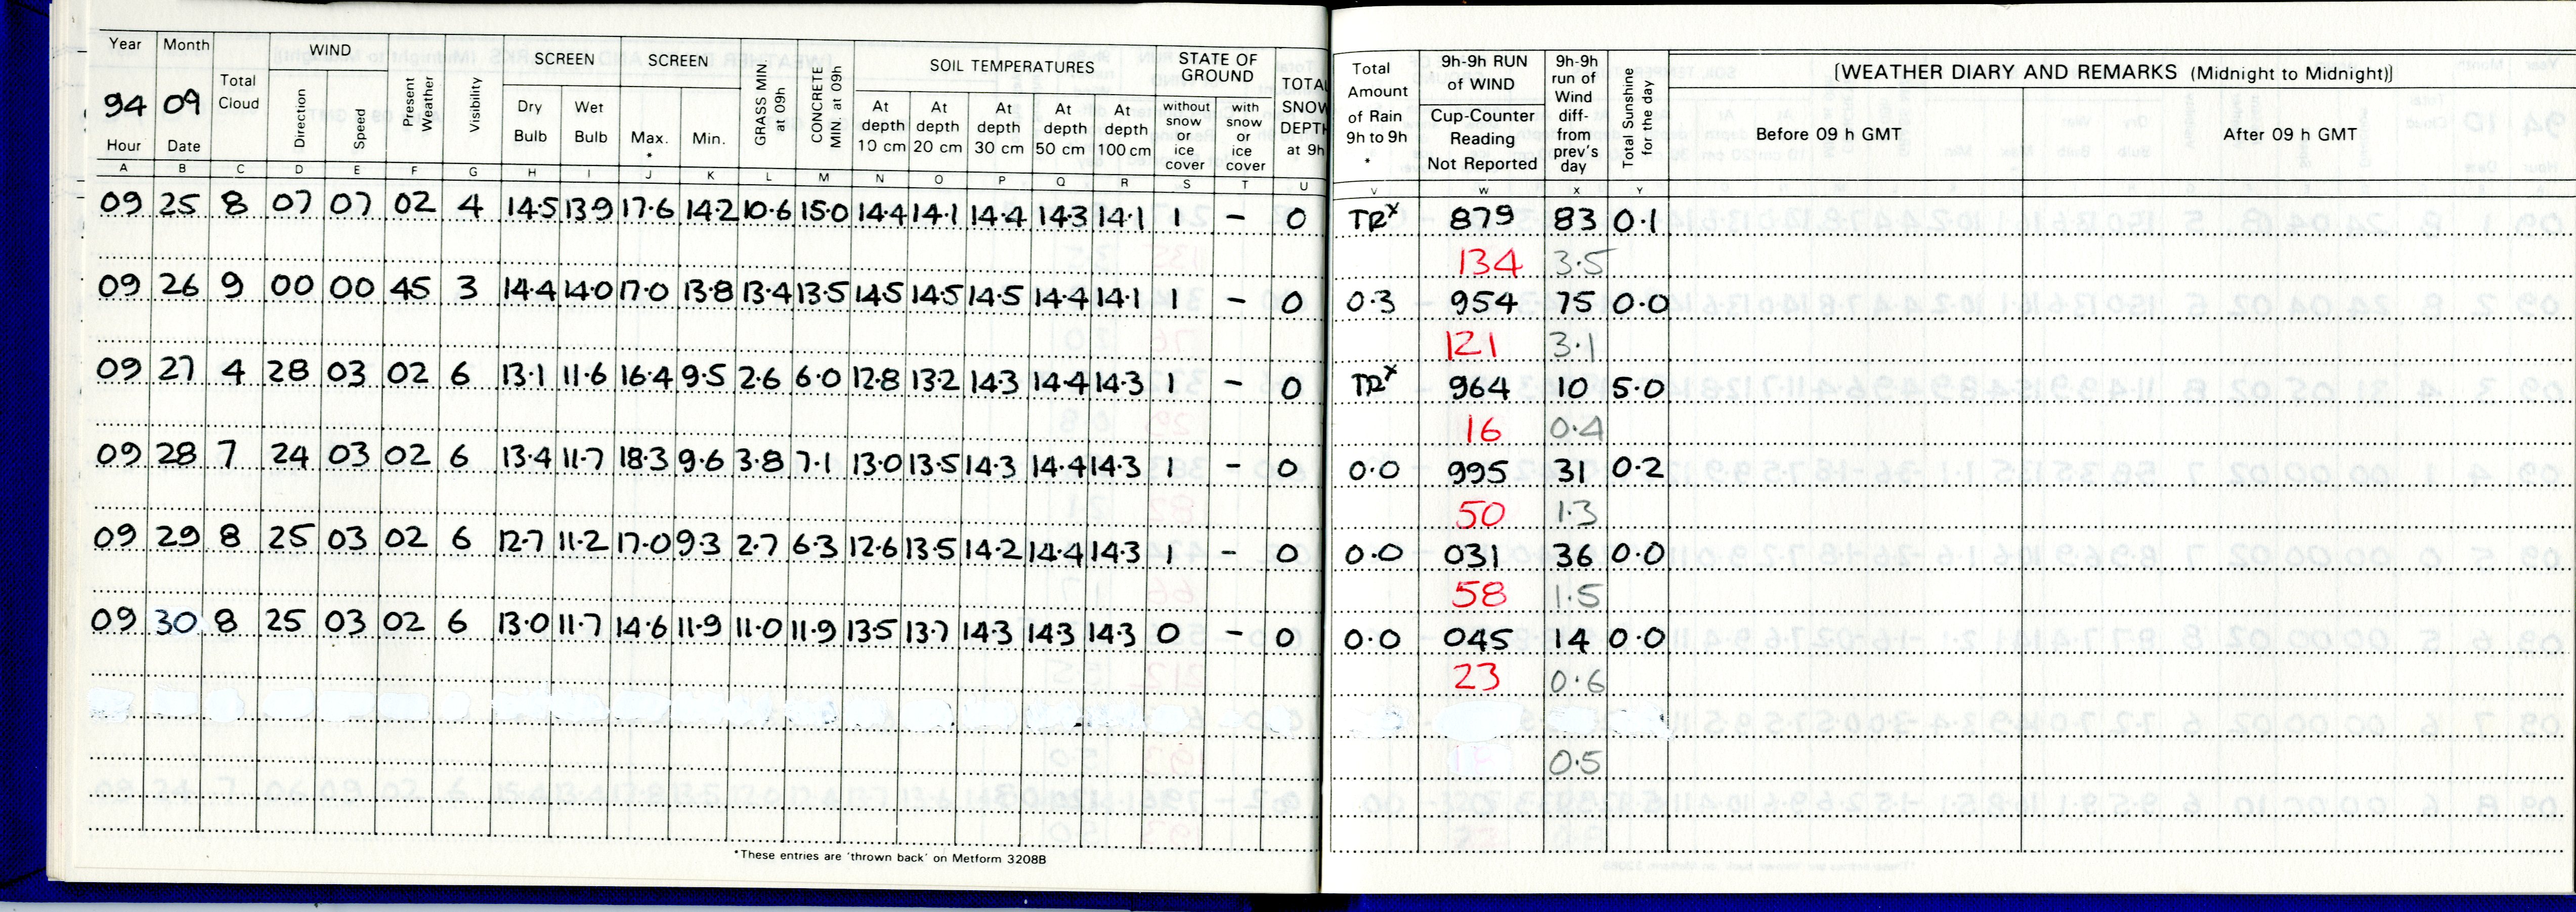 Year Month WIND SCREEN SCREEN SOIL TEMPERATURES STATE OF GROUND TOTAL SNOW DEPTH at 9h Total Amount of Rain 9h to 9h * 9h-9h RUN of WIND 9h-9h run of Wind diff- from prev's day Total Sunshine for the day [WEATHER DIARY AND REMARKS (Midnight to Midnight)]
94 09 Total Cloud Direction Speed Present Weather Visibility Dry Bulb Wet Bulb Max. * Min. GRASS MIN at 09h CONCRETE MIN at 09h At depth 10 cm At depth 20 cm At depth 30 cm At depth 50 cm At depth 100 cm without snow or ice cover with snow or ice cover Cup-Counter Reading Not Reported Before 09 h GMT After 09 h GMT
Hour Date
A B C D E F G H I J K L M N O P Q R S T U V W X Y
09 25 8 07 07 02 4 14.5 13.9 17.6 14.2 10.6 15.0 14.4 14.1 14.4 14.3 14.1 1 – 0 TRx 879 83 0.1
134 3.5
09 26 9 00 00 45 3 14.4 14.0 17.0 13.8 13.4 13.5 14.5 14.5 14.5 14.4 14.1 1 – 0 0.3 954 75 0.0
121 3.1
09 27 4 28 03 02 6 13.1 11.6 16.4 9.5 2.6 6.0 12.8 13.2 14.3 14.4 14.3 1 – 0 TRx 964 10 5.0
16 0.4
09 28 7 24 03 02 6 13.4 11.7 18.3 9.6 3.8 7.1 13.0 13.5 14.3 14.4 14.3 1 – 0 0.0 995 31 0.2
50 1.3
09 29 8 25 03 02 6 12.7 11.2 17.0 9.3 2.7 6.3 12.6 13.5 14.2 14.4 14.3 1 – 0 0.0 031 36 0.0
58 1.5
09 30 8 25 03 02 6 13.0 11.7 14.6 11.9 11.0 11.9 13.5 13.7 14.3 14.3 14.3 0 – 0 0.0 045 14 0.0
23 0.6
0.5
*These entries are 'thrown back' on Metform 3208B